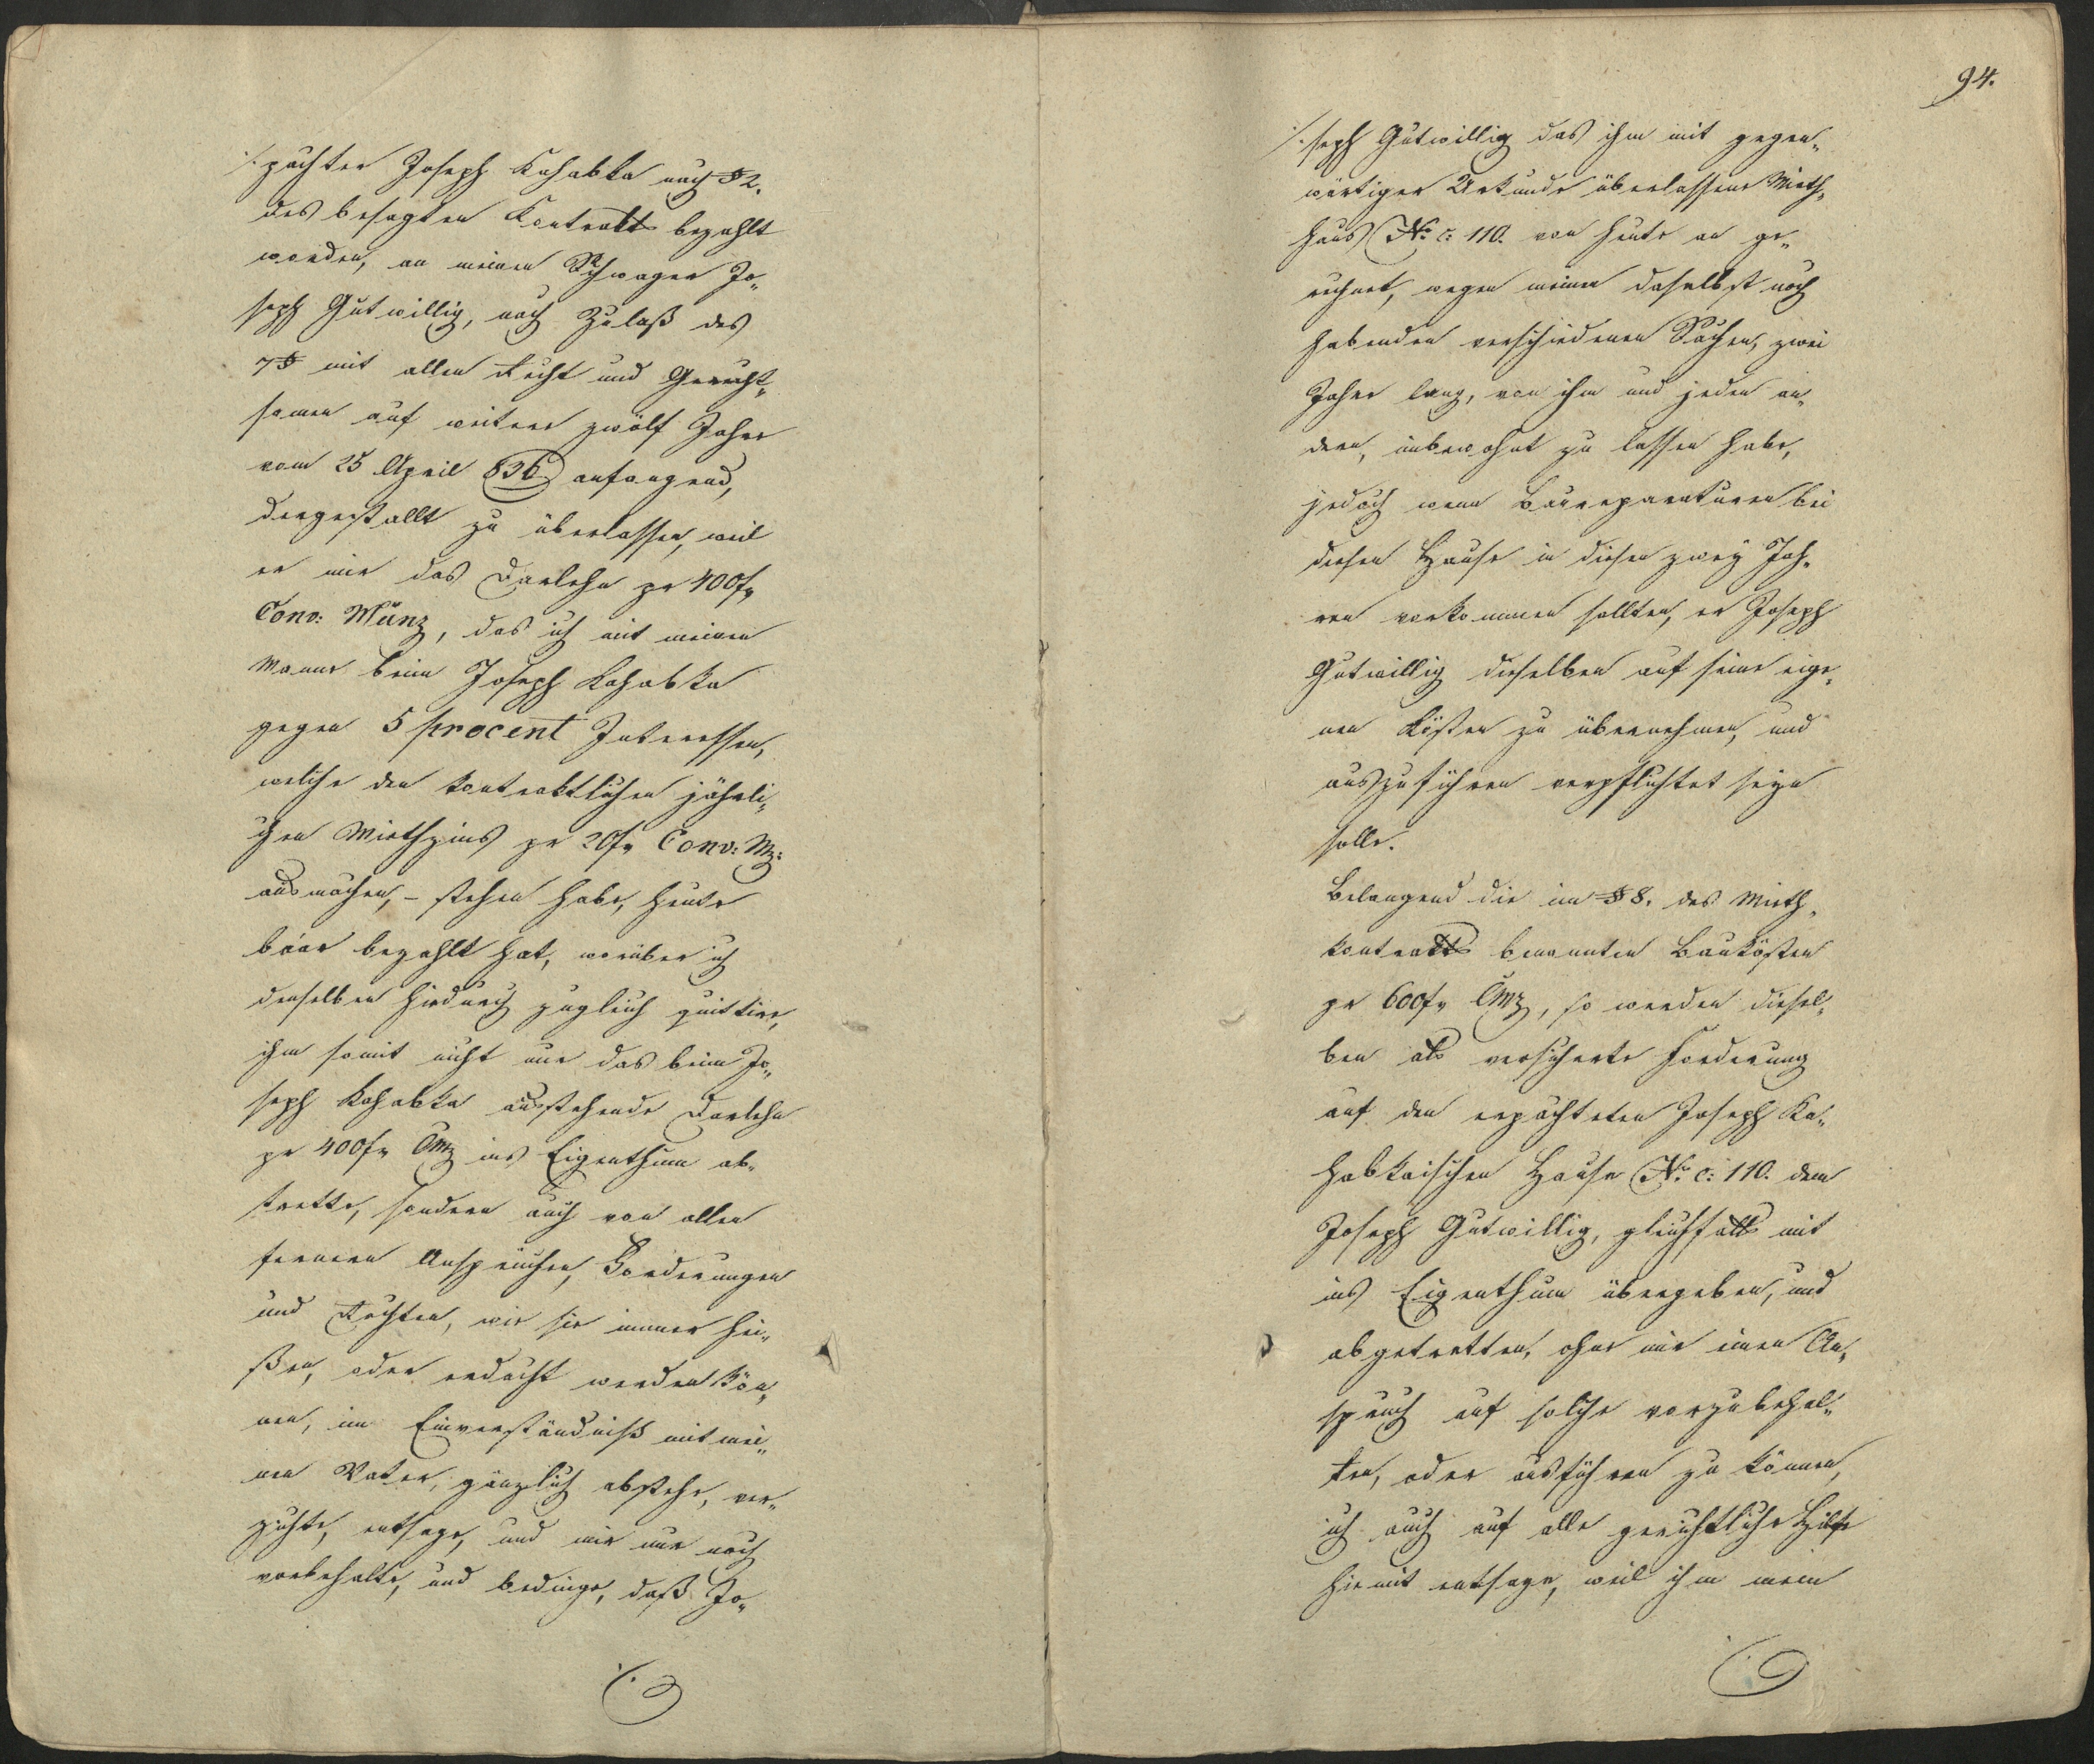 ./. pächter Joseph Kahabka nach §2.
des besagten Kontrakts bezahlt
worden, an meinen Schwager Jo„
seph Gutwillig, nach Zulaß des
7§ mit allen Recht und Gerecht„
samen auf weitere zwölf Jahre
vom 25 April 836 anfangend,
dergestallt zu überlassen, weil
er mir das Darlehn pr 400f„
Conv: Münz, das ich mit meinen
Manne beim Joseph Kahabka
gegen 5 procent Interessen,
welche den kontraktlichen jährli„
chen Miethzins pr 20f„ Conv: Mz:
ausmachen, – stehen habe, heute
baar bezahlt hat, worüber ich
denselben hiedurch zugleich quittire,
ihm somit nicht nur das beim Jo„
seph Kahabka ausstehende Darlehn
pr 400f„ CMz ins Eigenthum ab„
trette, sondern auch von allen
fernern Ansprüchen, Forderungen
und Rechten, wie sie immer hei„
ßen, oder erdacht werden kön„
nen, im Einverständniß mit mei„
nen Vater, gänzlich abstehe, ver„
zichte, entsage, und mir nur noch
vorbehalte, und bedinge, daß Jo„
94.
./. seph Gutwillig das ihm mit gegen„
wärtiger Urkunde überlassene Mieth„
haus No c: 110. von heute an ge„
rechnet, wegen meinen daselbst noch
habenden verschiedenen Sachen, zwei
Jahre lang, von ihm und jeden an„
dern, unbewohnt zu lassen habe,
jedoch wenn Baureparaturen bei
diesen Hause in diesen zwey Jah„
ren vorkommen sollten, er Joseph
Gutwillig dieselben auf seine eige„
nen Kösten zu übernehmen, und
auszuführen verpflichtet seyn
solle.
Belangend die im §8. des Mieth„
kontrakts benannten Baukösten
pr 600f„ CMz, so werden diesel„
ben als versicherte Forderung
auf den erpachteten Joseph Ka„
habkaischen Hause No c: 110. dem
Joseph Gutwillig, gleichfalls mit
ins Eigenthum übergeben, und
abgetretten, ohne mir einen An„
spruch auf solche vorzubehal„
ten, oder ausführen zu können,
ich auch auf alle gerichtliche Hilfe
hiemit entsage, weil ihm mein